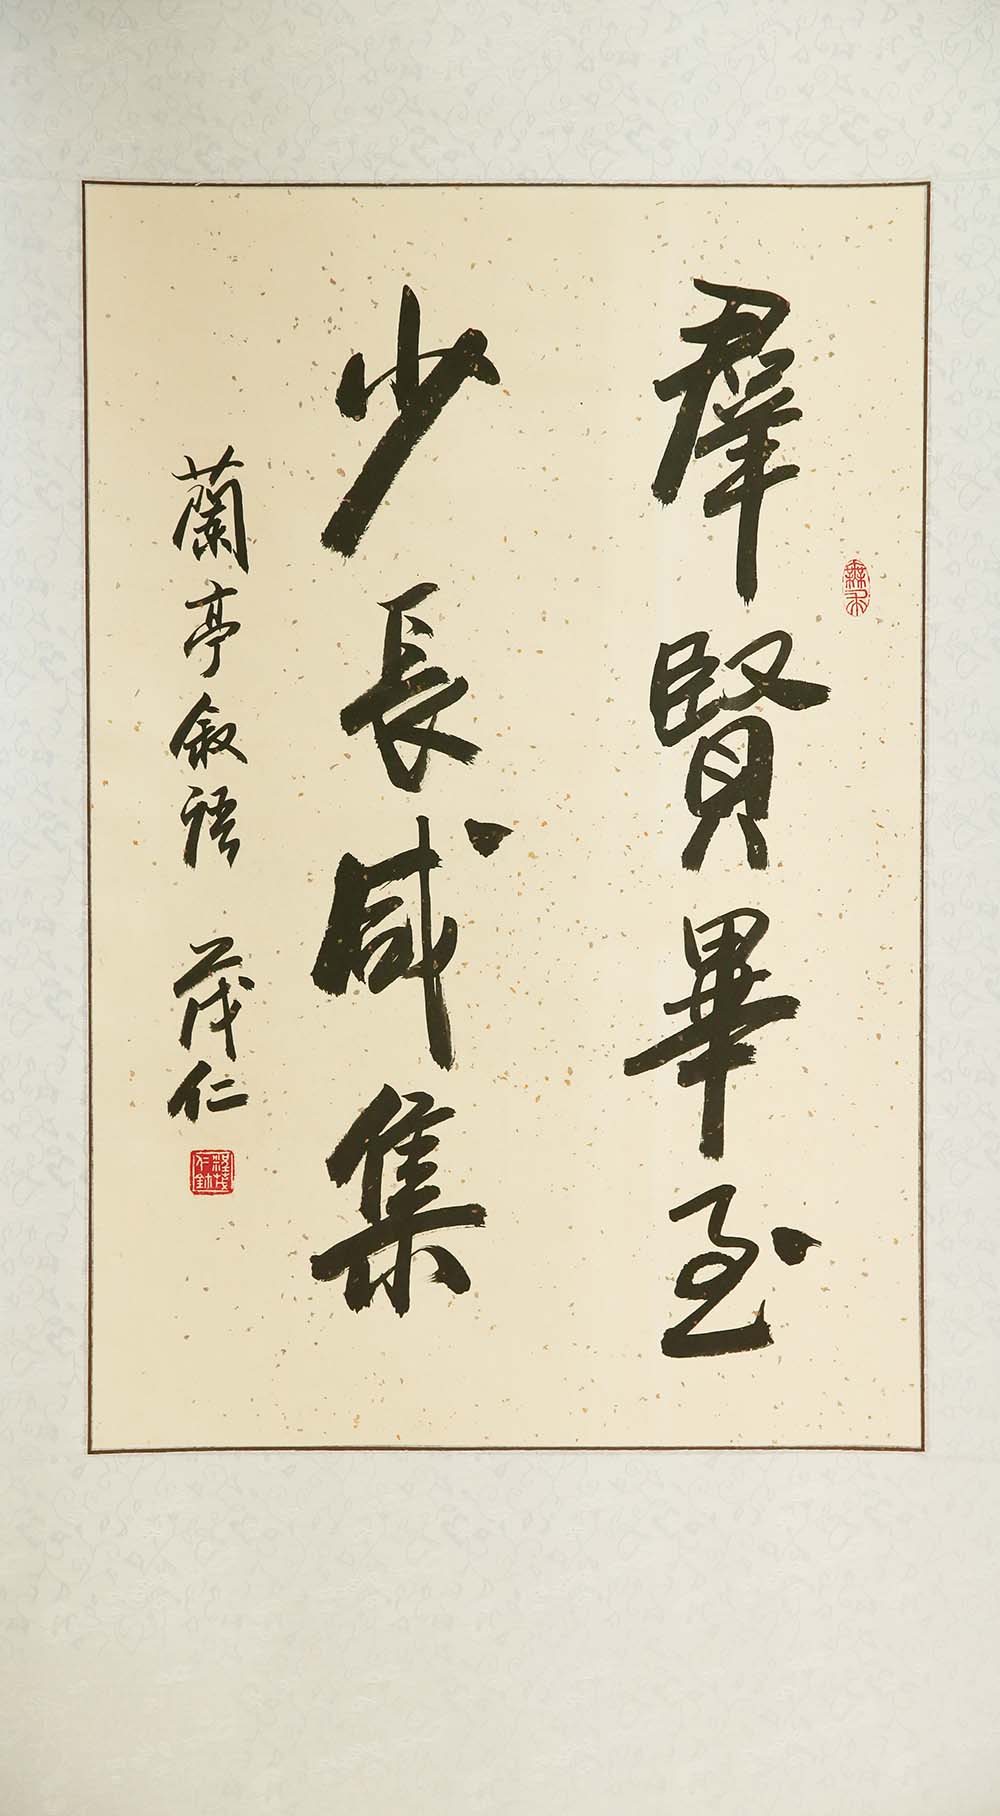 羣賢畢至
少長咸集
蘭亭叙語 茂仁